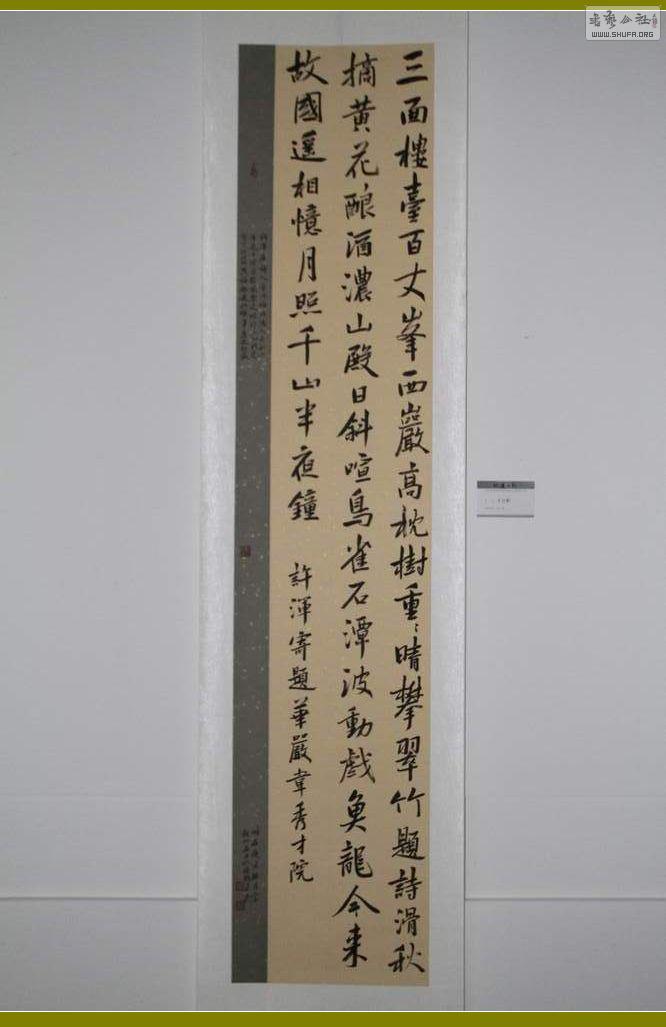 三面樓臺百丈峯西巖高枕樹重〻晴攀翠竹題詩滑秋
摘黄花酿酒濃山殿日斜喧鳥雀石潭波動戲魚龍今来
故國遥相憶月照千山半夜鐘 許渾寄題華嚴韋秀才院
書藝公社
WWW.SHUFA.ORG